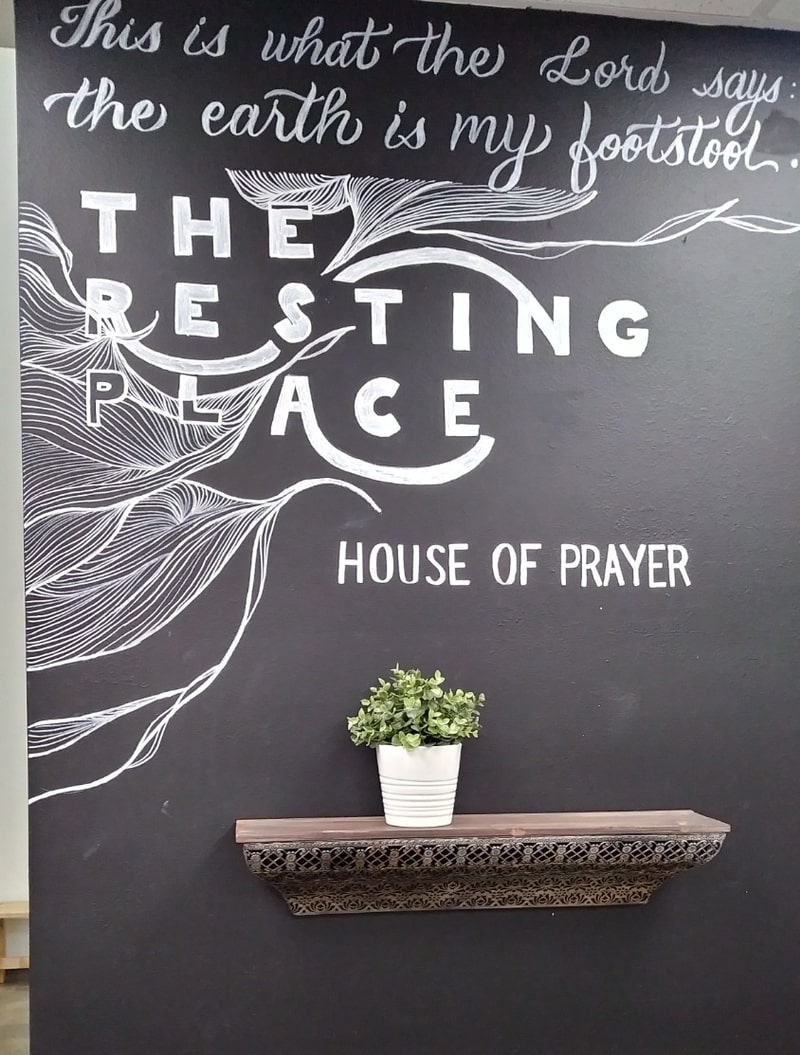 This is what the Lord says:
the earth is my footstool.
THE
RESTING
PLACE
HOUSE OF PRAYER